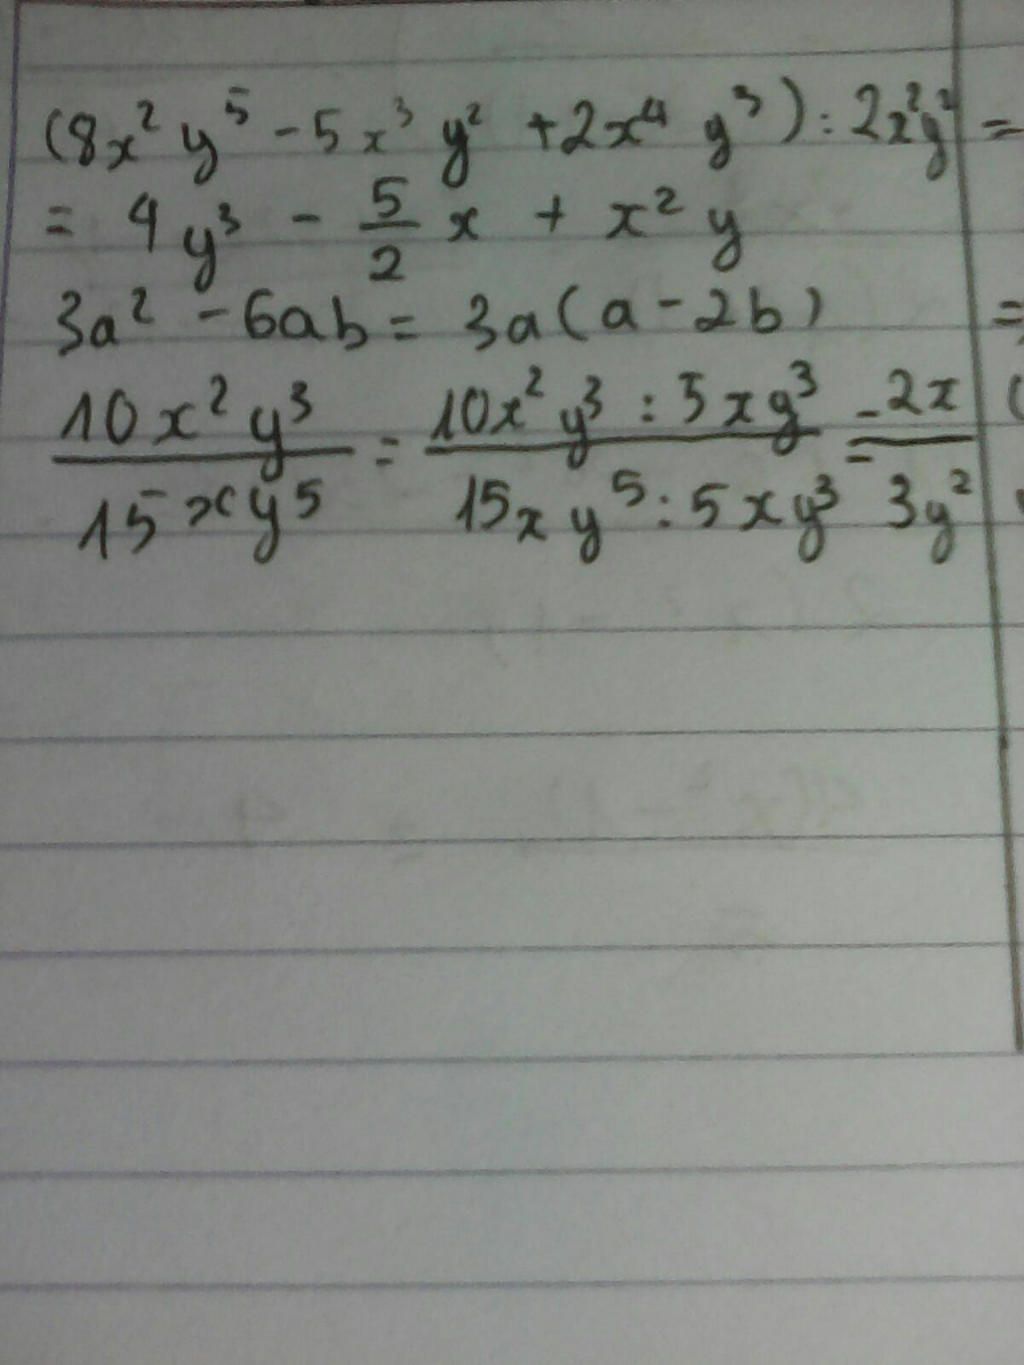 (8x² y⁵ - 5x³ y² + 2x⁴ y³) : 2x²y² =
= 4y³ - 5/2 x + x² y
3a² - 6ab = 3a(a - 2b) =
10x² y³ / 15xy⁵ = 10x² y³ : 5xy³ / 15xy⁵ : 5xy³ = 2x / 3y² (